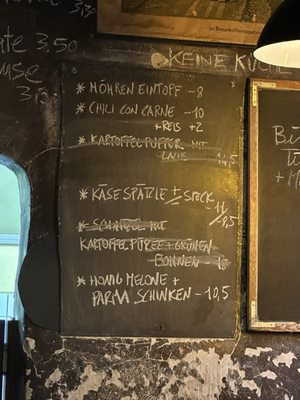 3,50
KEINE KÜCHE
* MÖHREN EINTOPF - 8
* CHILI CON CARNE - 10
+ REIS + 2
* KARTOFFEL PUFFER MIT
LACHS
* KÄSE SPÄTZLE ± SPECK
- 11
/ 9,5
* SCHNITZEL MIT
KARTOFFEL PÜREE + GRÜNEN
BOHNEN - 18
* HONIG MELONE +
PARMA SCHINKEN - 10,5